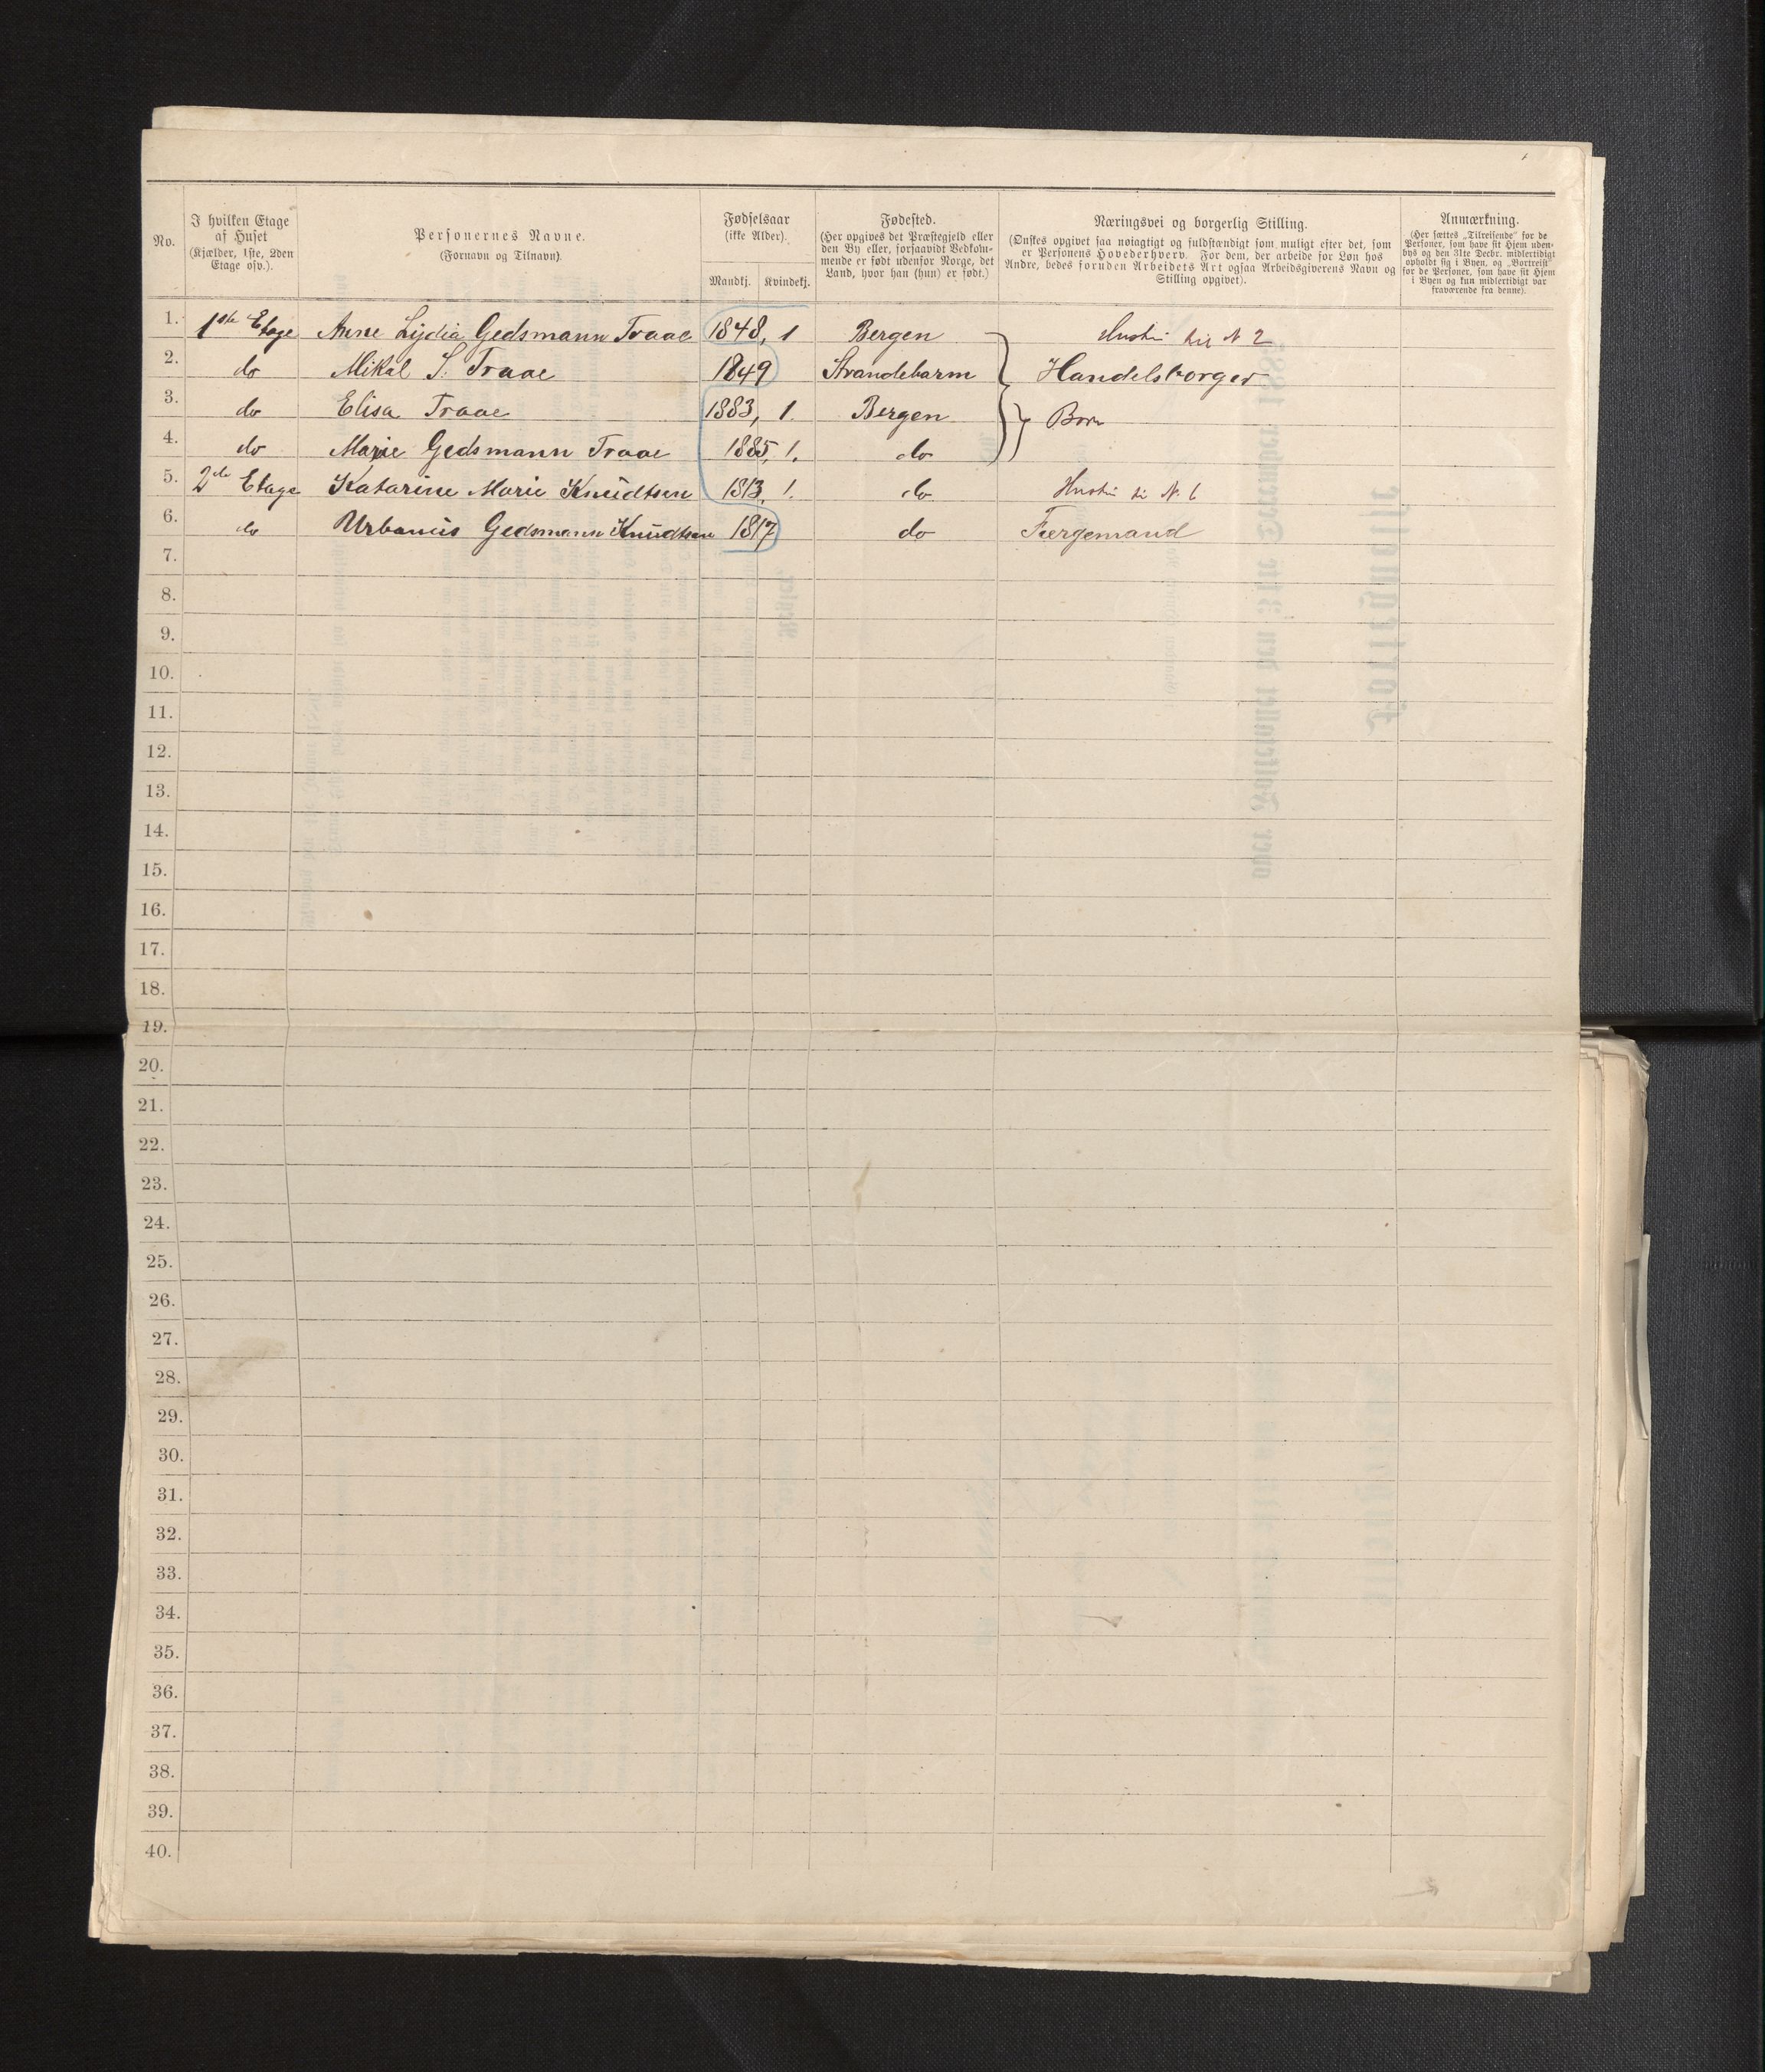 No.
I hvilken Etage
af Huset
(Kjælder, 1ste, 2den
Etage osv.).
Personernes Navne.
(Fornavn og Tilnavn).
Fødselsaar
(ikke Alder).
Mandkj. Kvindekj.
Fødested.
(Her opgives det Præstegjeld eller
den By eller, forsaavidt Vedkom-
mende er født udenfor Norge, det
Land, hvor han (hun) er født.)
Næringsvei og borgerlig Stilling.
(Ønskes opgivet saa nøiagtigt og fuldstændigt som muligt efter det, som
er Personens Hovederhverv. For dem, der arbeide for Løn hos
Andre, bedes foruden Arbeidets Art ogsaa Arbeidsgiverens Navn og
Stilling opgivet).
Anmærkning.
(Her sættes „Tilreisende“ for de
Personer, som have sit Hjem uden-
bys og den 31te Decbr. midlertidigt
opholdt sig i Byen, og „Bortreist“
for de Personer, som have sit Hjem
i Byen og kun midlertidigt var
fraværende fra denne).
1. 1ste Etage Anne Lydia Gedsmann Traae 1848, 1 Bergen Hustru til N 2
2. do Mikal S. Traae 1849 Strandebarm Handelsborger
3. do Elisa Traae 1883, 1. Bergen Børn
4. do Marie Gedsmann Traae 1885, 1. do
5. 2de Etage Katarine Marie Knudtsen 1813, 1. do Hustru til N. 6
6. do Urbanus Gedsmann Knudtsen 1817 do Færgemand
7.
8.
9.
10.
11.
12.
13.
14.
15.
16.
17.
18.
19.
20.
21.
22.
23.
24.
25.
26.
27.
28.
29.
30.
31.
32.
33.
34.
35.
36.
37.
38.
39.
40.